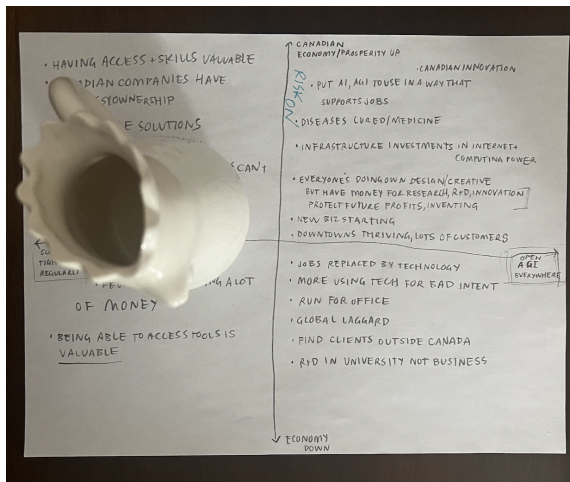 • HAVING ACCESS + SKILLS VALUABLE
COMPANIES HAVE
OWNERSHIP
SOLUTIONS
CAN'T
TIGH
REGULARL
A LOT
OF MONEY
• BEING ABLE TO ACCESS TOOLS IS
VALUABLE
CANADIAN
ECONOMY/PROSPERITY UP
RISK ON
• CANADIAN INNOVATION
• PUT AI, AGI TO USE IN A WAY THAT
SUPPORTS JOBS
• DISEASES CURED/MEDICINE
• INFRASTRUCTURE INVESTMENTS IN INTERNET +
COMPUTING POWER
• EVERYONE'S DOING OWN DESIGN/CREATIVE
BUT HAVE MONEY FOR RESEARCH, R+D, INNOVATION
PROTECT FUTURE PROFITS, INVENTING
• NEW BIZ STARTING
• DOWNTOWNS THRIVING, LOTS OF CUSTOMERS
OPEN
AGI
EVERYWHERE
• JOBS REPLACED BY TECHNOLOGY
• MORE USING TECH FOR BAD INTENT
• RUN FOR OFFICE
• GLOBAL LAGGARD
• FIND CLIENTS OUTSIDE CANADA
• R+D IN UNIVERSITY NOT BUSINESS
ECONOMY
DOWN